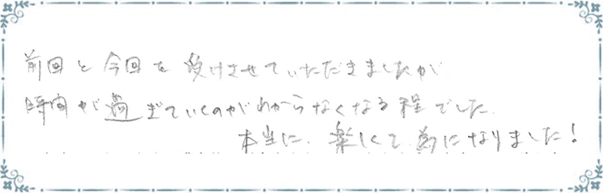 前回と今回を受けさせていただきましたが
時間が過ぎていくのがわからなくなる程でした.
本当に、楽しくて為になりました!